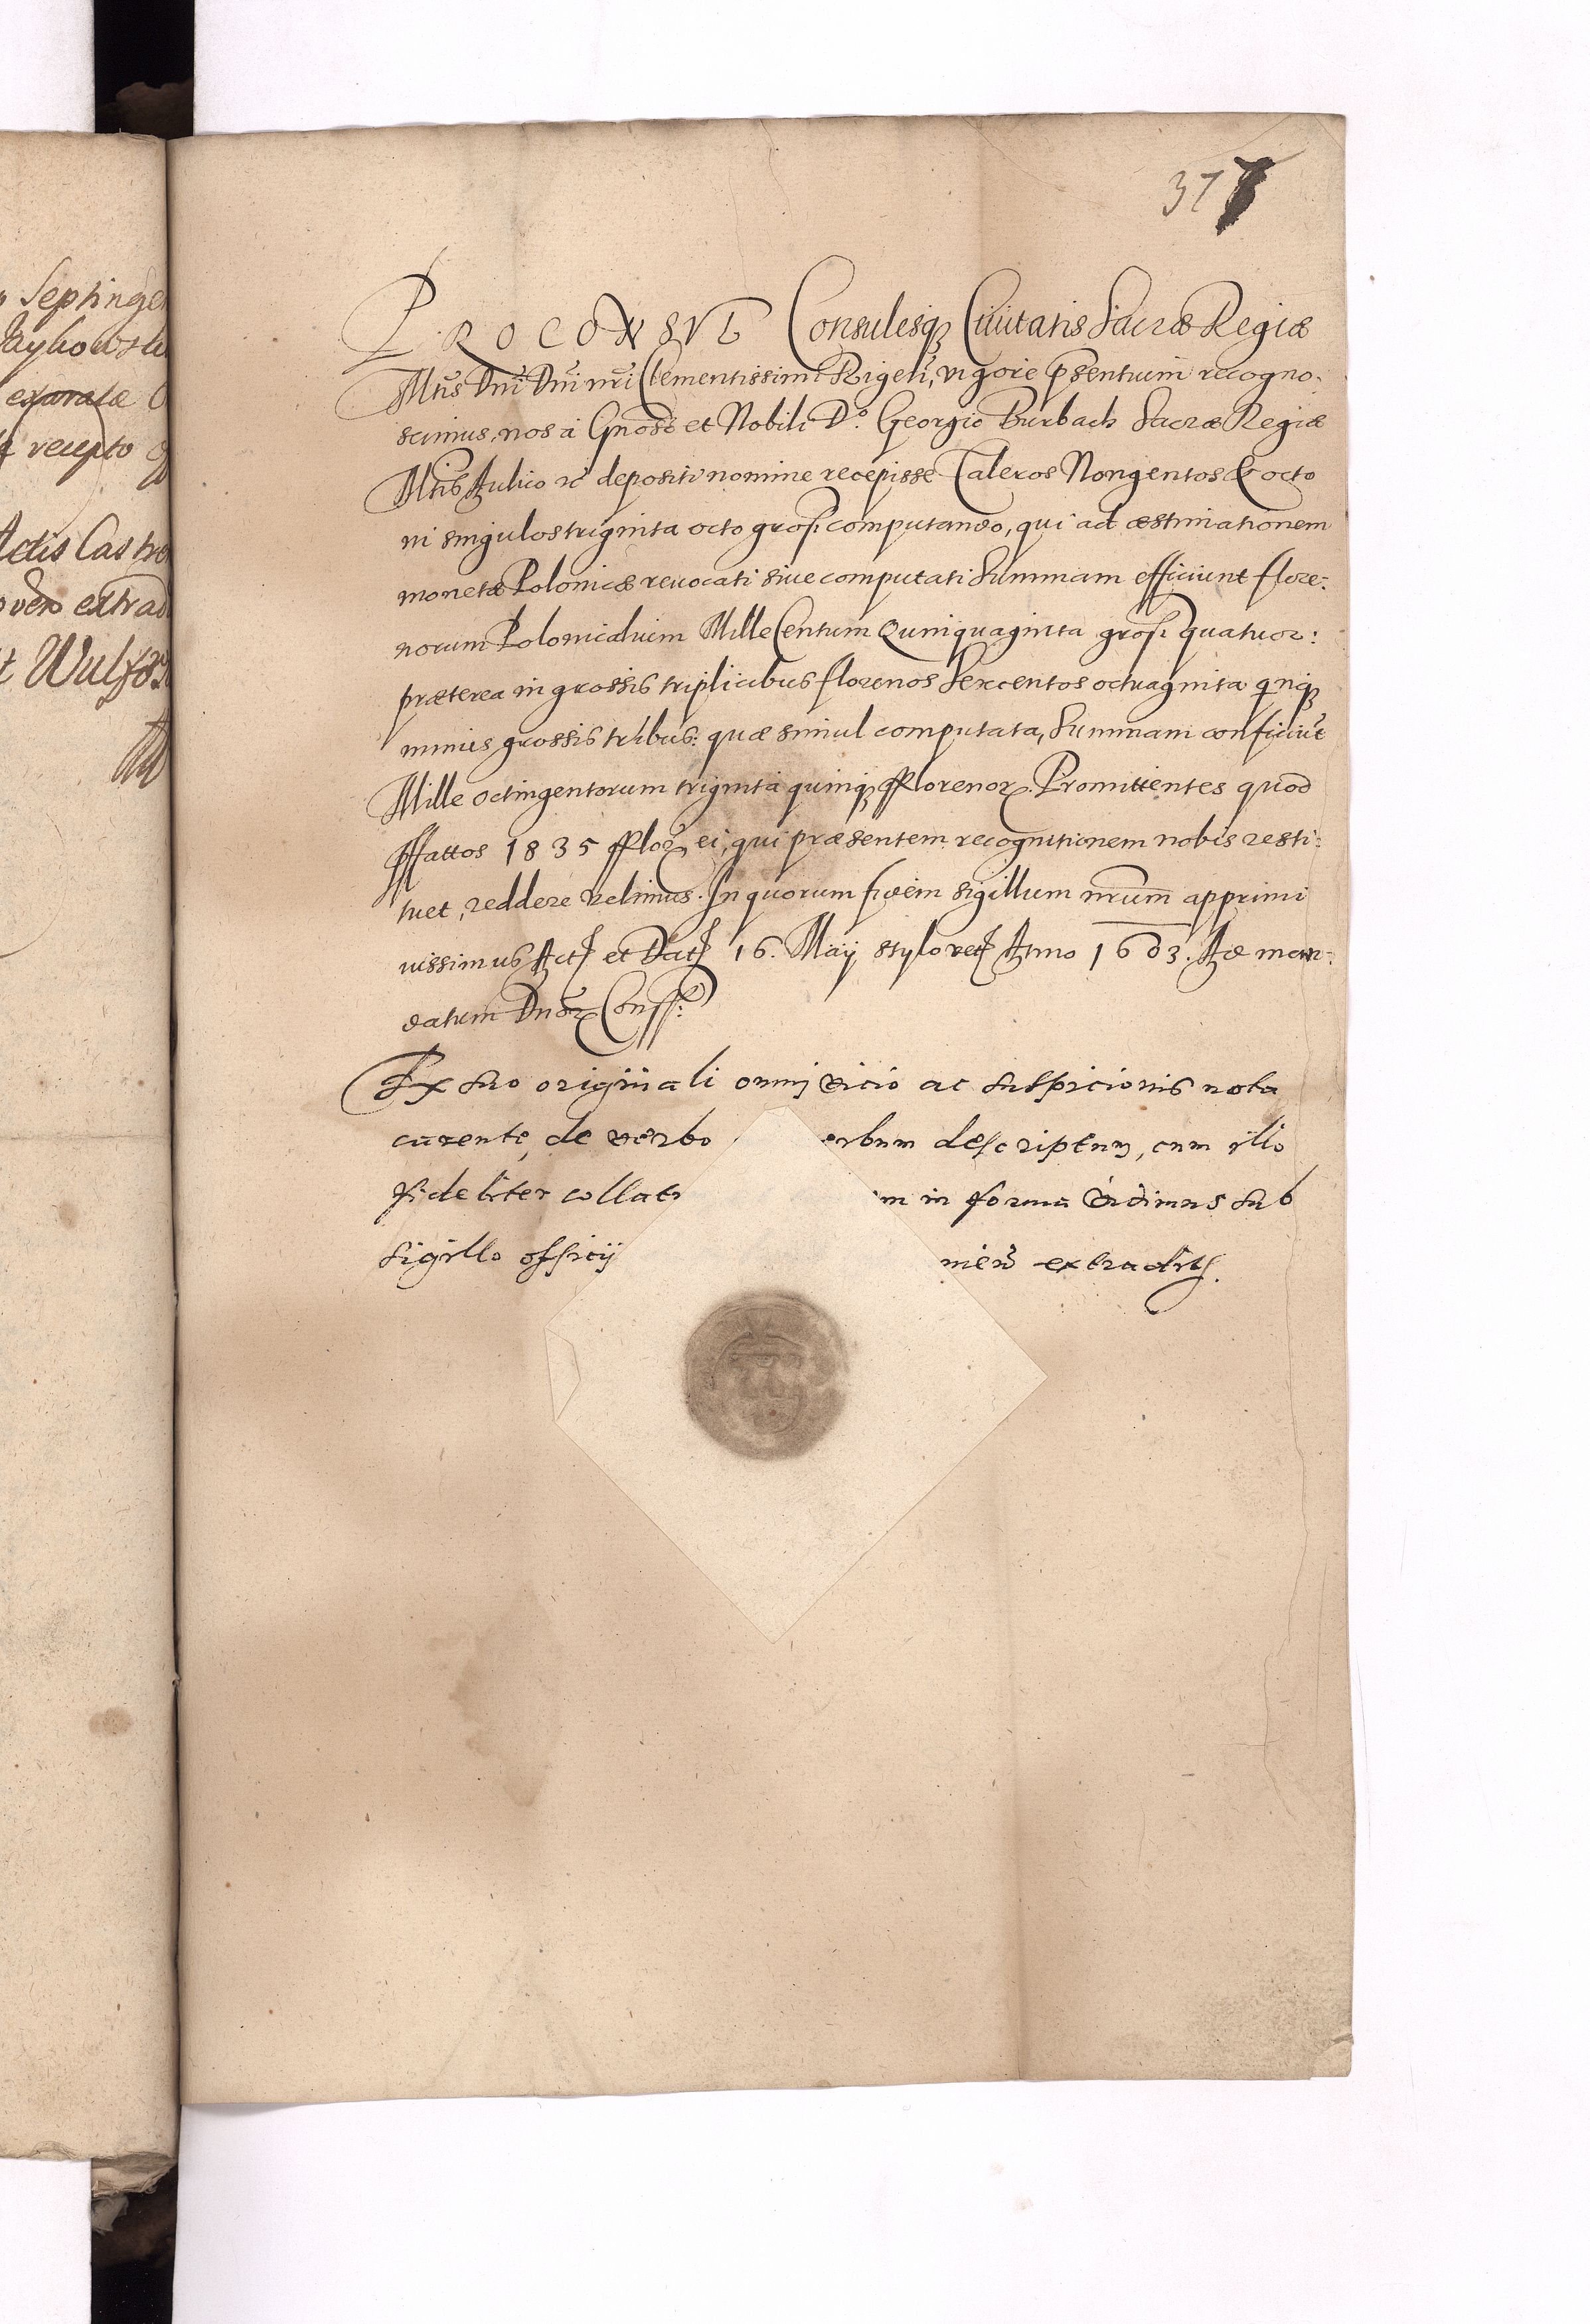 37
PROCONSVL Consulesq₃ Ciuitatis Sacræ Regiæ
Mtis Dni Dni nri Clementissimi Rigeñ, vigore pñsentium recogno-
scimus, nos à Gnoso et Nobili D° Georgio Burbach Sacræ Regiæ
Mtis Aulico ꝛc depositi nomine recepisse Taleros Nongentos & octo
in singulos triginta octo gross computando, qui ad æstimationem
monetæ Polonicæ reuocati siue computati Summam efficiunt flore-
norum Polonicaluim Mille Centum Quinquaginta gross quatuor:
præterea in grossis triplicibus florenos Sexcentos octuaginta qinq₃
minus grossis tribus: quæ simul computata, Summam conficiut
Mille octingentorum triginta quinq₃ fflorenoꝝ. Promittentes quod
pffattos 1835 ffloꝝ ei, qui præsentem recognitionem nobis resti-
tuet, reddere velimus. In quorum fidem sigillum nrum apprimi
iussimus Actꝭ et Datꝭ 16. Maij stylo vetꝭ Anno 1603. Ad man-
datum Dnoꝝ Conss:
Ex suo originali omnj vicio ac suspicionis nota
carente, de verbo erbum descriptum, cum illo
fideliter collat in forma vidimus sub
sigillo officij men extraditꝭ.
Septinge
Jaykowsk
exaratæ
recepto
Actis Castre
vero extrad
t Wulf